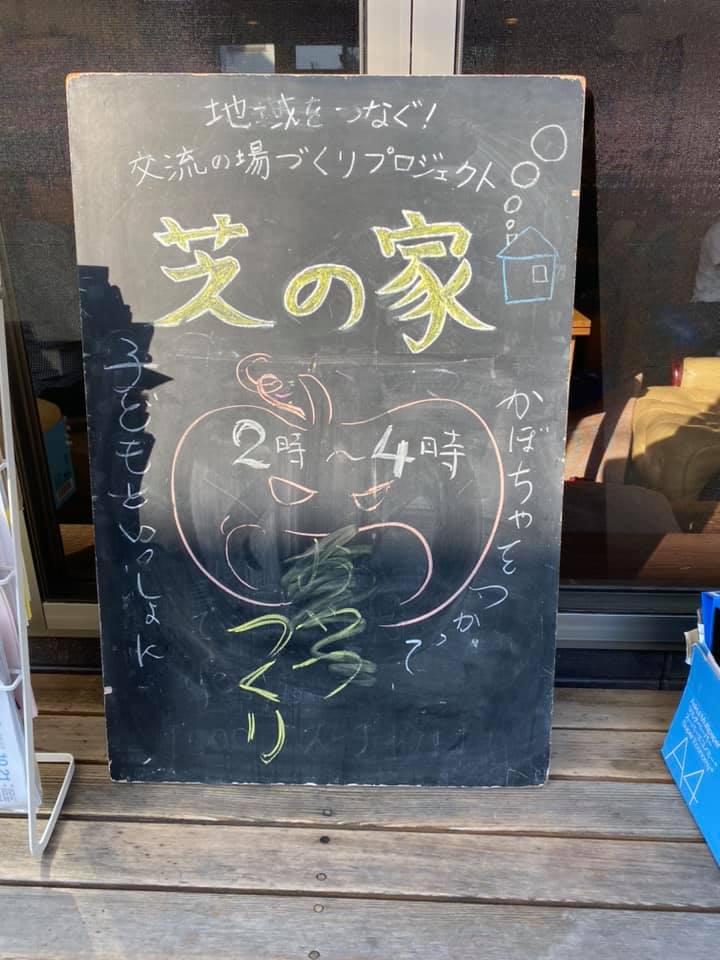 地域をつなぐ!
交流の場づくりプロジェクト
芝の家
2時〜4時
かぼちゃをつかって
おやつ
つくり
子どもといっしょに
A4